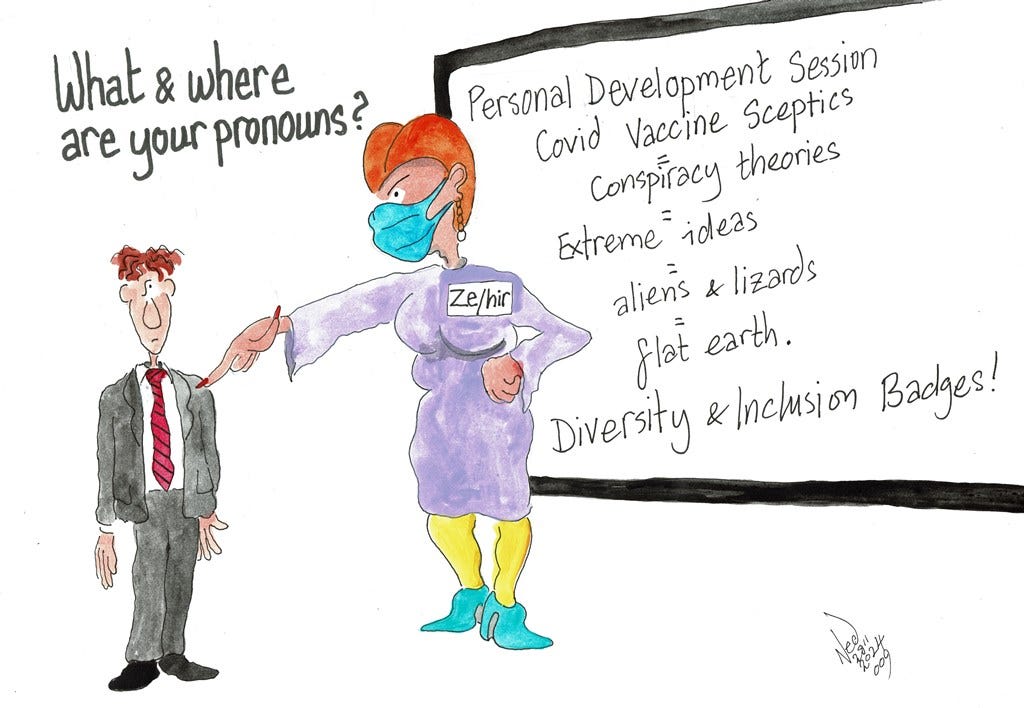 What & where
are your pronouns?
Personal Development Session
Covid Vaccine Sceptics
=
Conspiracy theories
=
Extreme ideas
=
aliens & lizards
=
flat earth.
Diversity & Inclusion Badges!
Ze/hir
Ned
2024
009